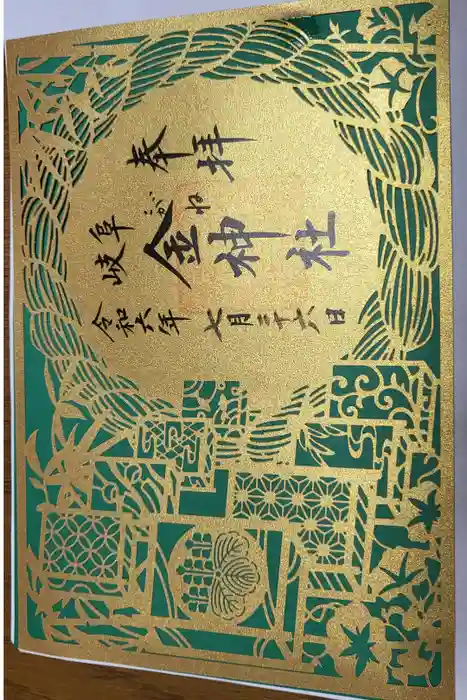 奉拝
こがね
岐阜 金神社
令和六年七月二十六日